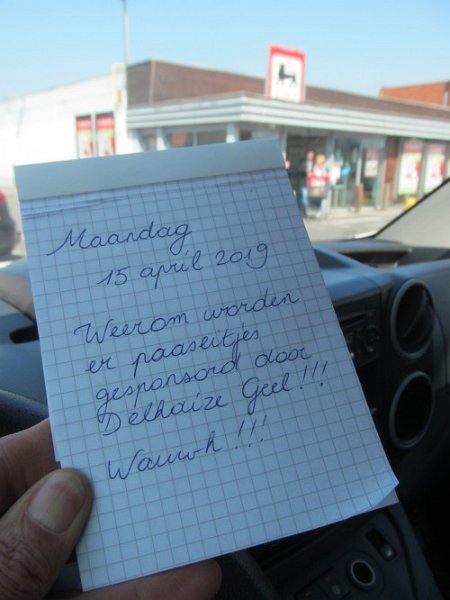 Maandag
15 april 2019
Weerom worden
er paaseitjes
gesponsord door
Delhaize Geel!!!
Wauwh!!!